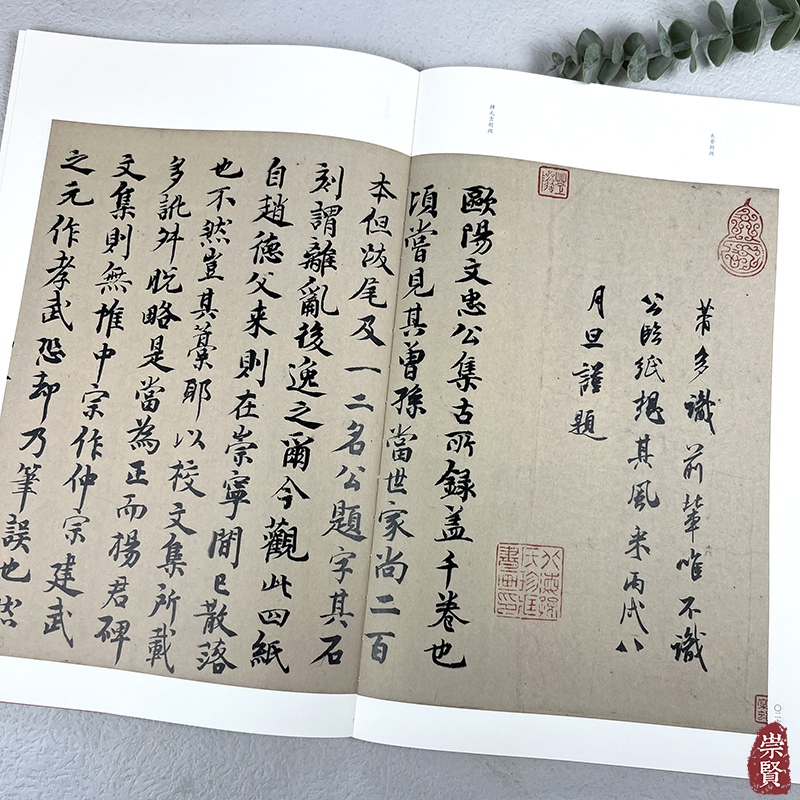 朱熹題跋
芾多識前輩唯不識
公臨紙想其風采丙戌八
月旦謹題
韓元吉題跋
歐陽文忠公集古所錄盖千卷也
頃嘗見其曽孫當世家尚二百
本但跋尾及一二名公題字其石
刻謂離亂後逸之爾今觀此四紙
自趙德父来則在崇寧間已散落
也不然豈其藁耶以校文集所載
多訛舛脫略是當為正而楊君碑
文集則無惟中宗作仲宗建武
之元作孝武恐却乃筆誤也
崇賢